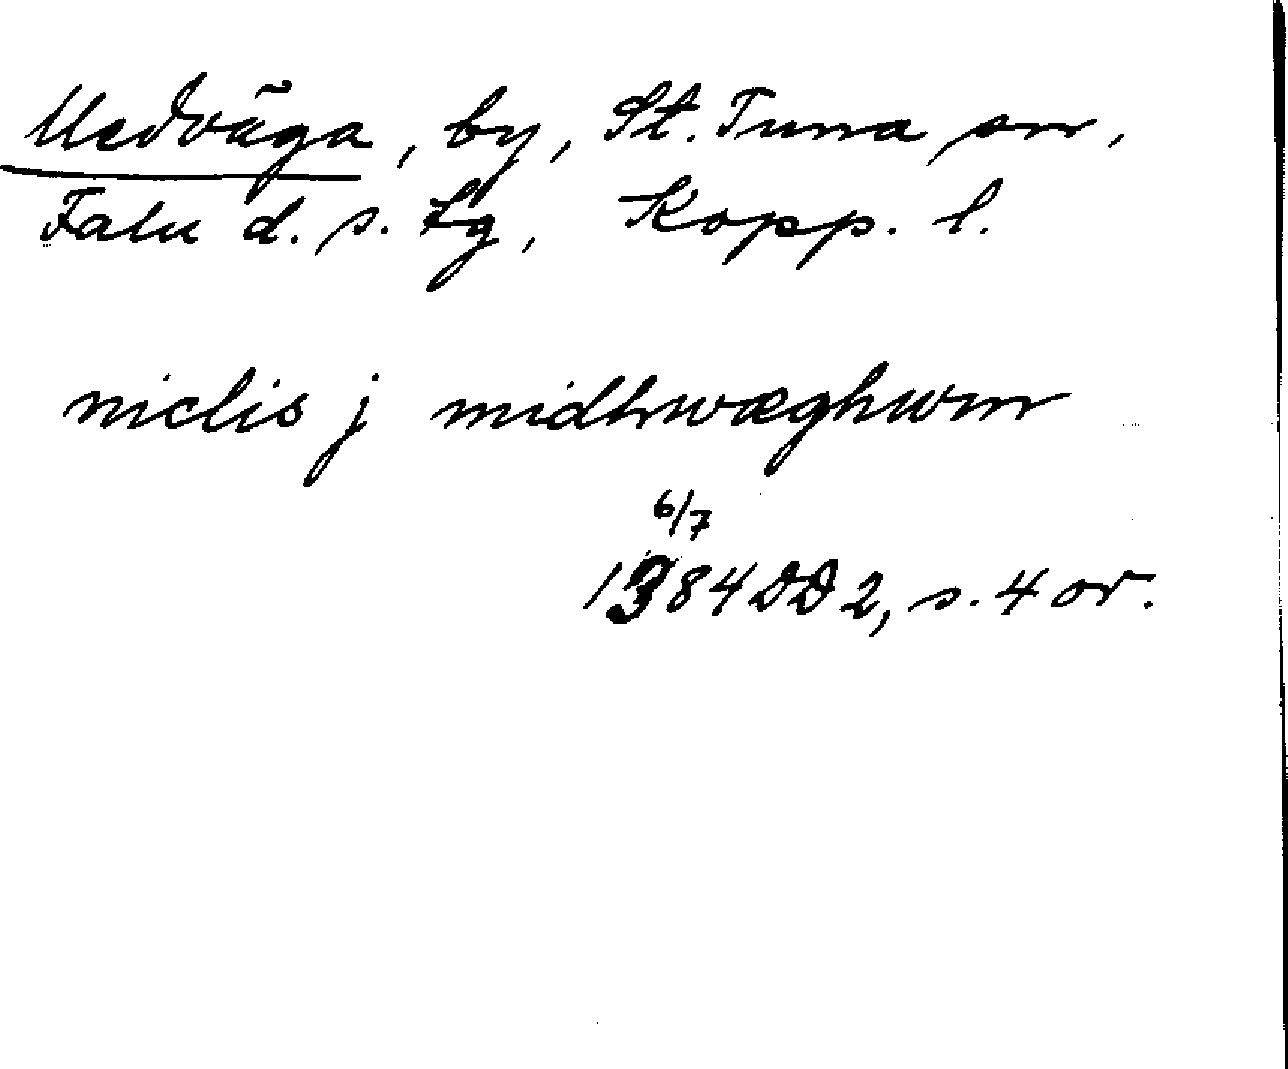 Medväga, by, St. Tuna sn,
Falu d. s. tg, Kopp. l.
niclis j midhwæghwm
6/7
1384 DD 2, s. 4 or.